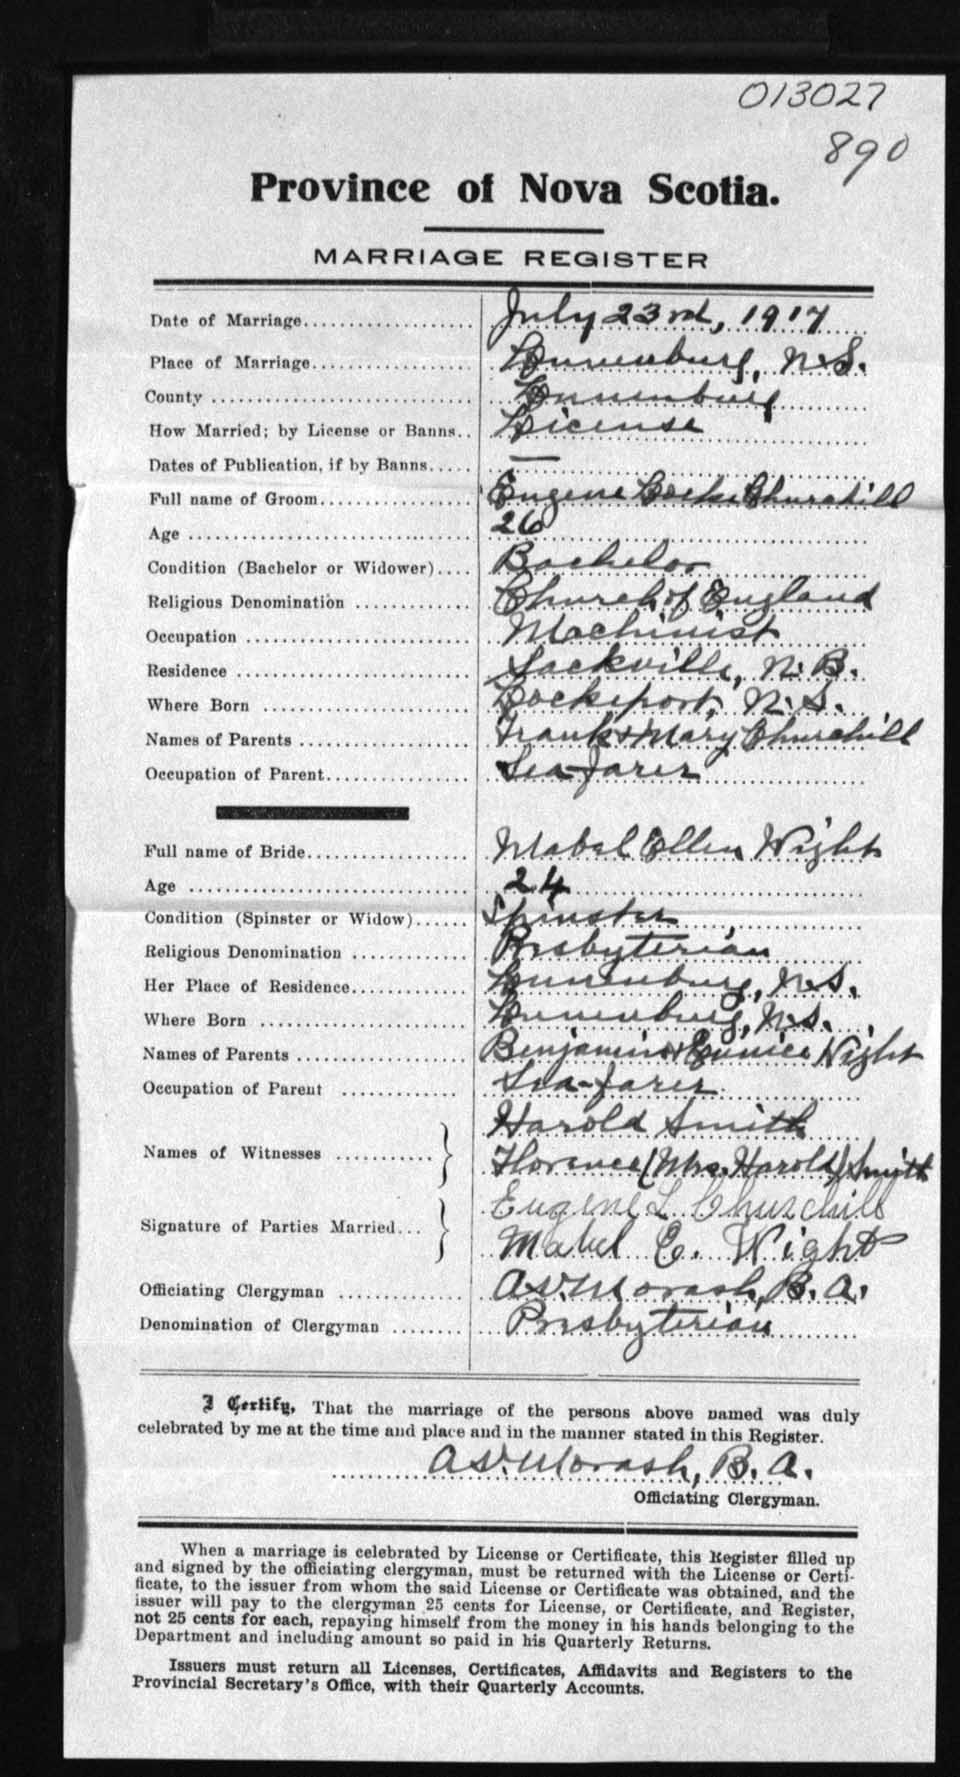 013027
890
Province of Nova Scotia.
MARRIAGE REGISTER
Date of Marriage.................... July 23rd, 1917
Place of Marriage.................. Lunenburg, N.S.
County ............................. Lunenburg
How Married; by License or Banns.. License
Dates of Publication, if by Banns..... —
Full name of Groom................. Eugene Locke Churchill
Age ............................... 26
Condition (Bachelor or Widower).... Bachelor
Religious Denomination ............. Church of England
Occupation ......................... Machinist
Residence .......................... Sackville, N. B.
Where Born ........................ Lockeport, N. S.
Names of Parents ................... Frank & Mary Churchill
Occupation of Parent................ Sea-farer
Full name of Bride.................. Mabel Ellen Wight
Age ............................... 24
Condition (Spinster or Widow)...... Spinster
Religious Denomination ............. Presbyterian
Her Place of Residence............. Lunenburg, N.S.
Where Born ........................ Lunenburg, N.S.
Names of Parents ................... Benjamin & Eunice Wight
Occupation of Parent ............. Sea-farer
Harold Smith
Names of Witnesses ........... } Florence (Mrs. Harold) Smith
Eugene L Churchill
Signature of Parties Married... } Mabel E. Wight
Officiating Clergyman .............. A.V. Morash, B. A.
Denomination of Clergyman ........ Presbyterian
I Certify, That the marriage of the persons above named was duly
celebrated by me at the time and place and in the manner stated in this Register.
A.V. Morash, B. A.
Officiating Clergyman.
When a marriage is celebrated by License or Certificate, this Register filled up
and signed by the officiating clergyman, must be returned with the License or Certi-
ficate, to the issuer from whom the said License or Certificate was obtained, and the
issuer will pay to the clergyman 25 cents for License, or Certificate, and Register,
not 25 cents for each, repaying himself from the money in his hands belonging to the
Department and including amount so paid in his Quarterly Returns.
Issuers must return all Licenses, Certificates, Affidavits and Registers to the
Provincial Secretary's Office, with their Quarterly Accounts.